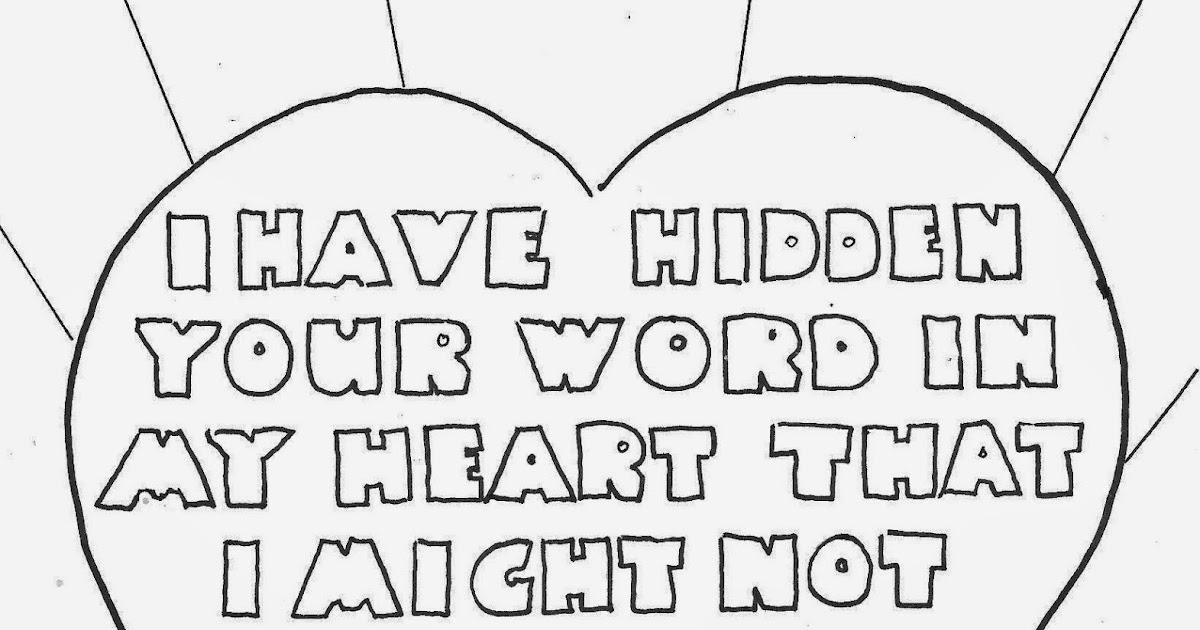 I HAVE HIDDEN
YOUR WORD IN
MY HEART THAT
I MIGHT NOT